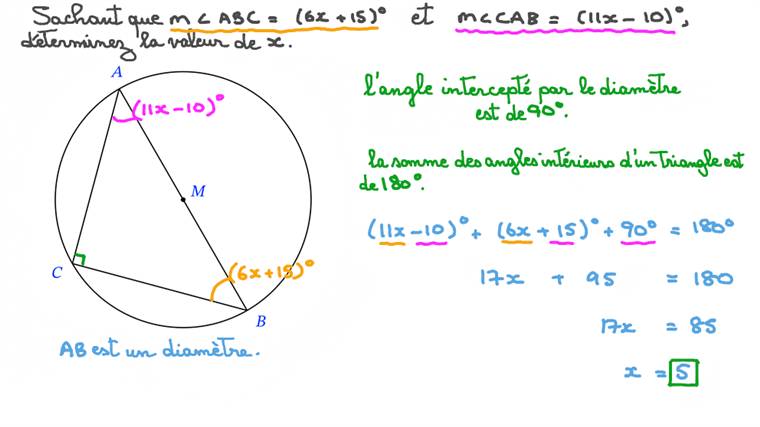 Sachant que m∠ABC = (6x+15)° et m∠CAB = (11x-10)°,
déterminez la valeur de x.
A
(11x-10)°
M
C
(6x+15)°
B
AB est un diamètre.
l'angle intercepté par le diamètre
est de 90°.
la somme des angles intérieurs d'un triangle est
de 180°.
(11x-10)° + (6x+15)° + 90° = 180°
17x + 95 = 180
17x = 85
x = 5